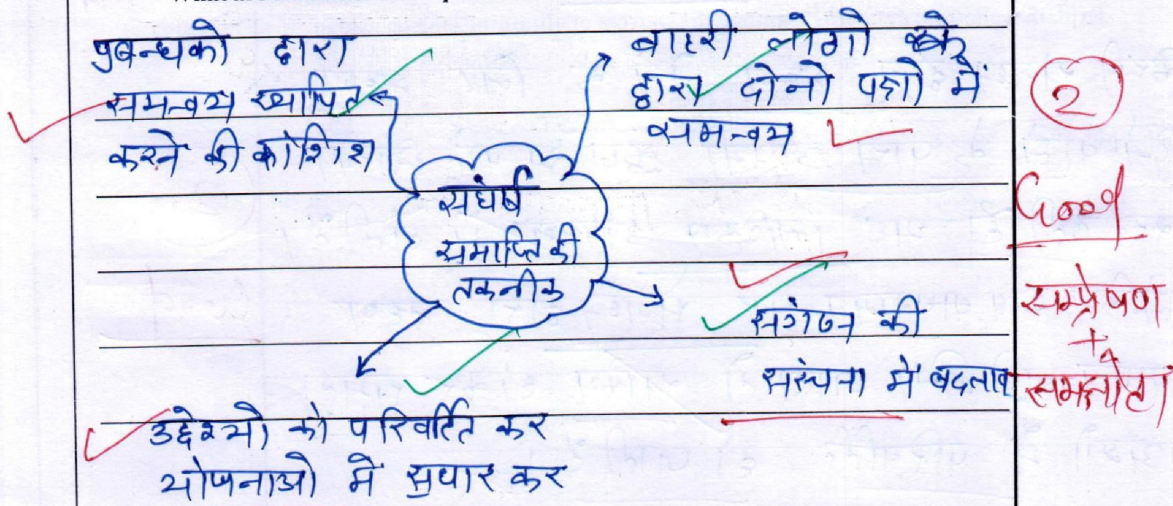 प्रबन्धको द्वारा
समन्वय स्थापित
करने की कोशिश
बाहरी लोगो के
द्वारा दोनो पक्षो में
समन्वय
संघर्ष
समाप्ति की
तकनीक
संगठन की
संरचना में बदलाव
उद्देश्यो को परिवर्तित कर
योजनाओ मे सुधार कर
2
Good
सम्प्रेषण
+
समझौता